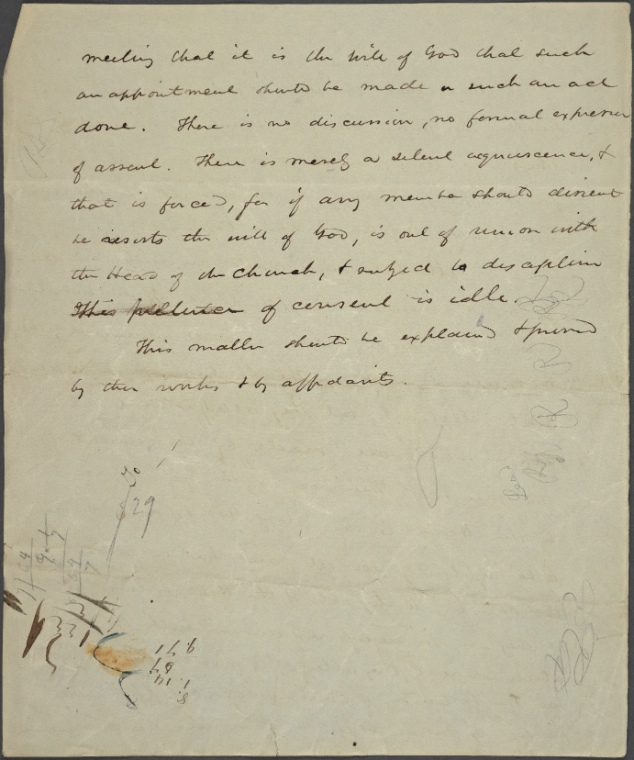 meeting that it is the will of God that such
an appointment should be made or such an act
done. There is no discussion, no formal expression
of assent. There is merely a silent acquiescence, &
that is forced, for if any member should dissent
he resists the will of God, is out of union with
the Head of the Church, & subject to discipline
This pretence of consent is idle.
This matter should be explained & proved
by their works & by affidavits.
29
9.71